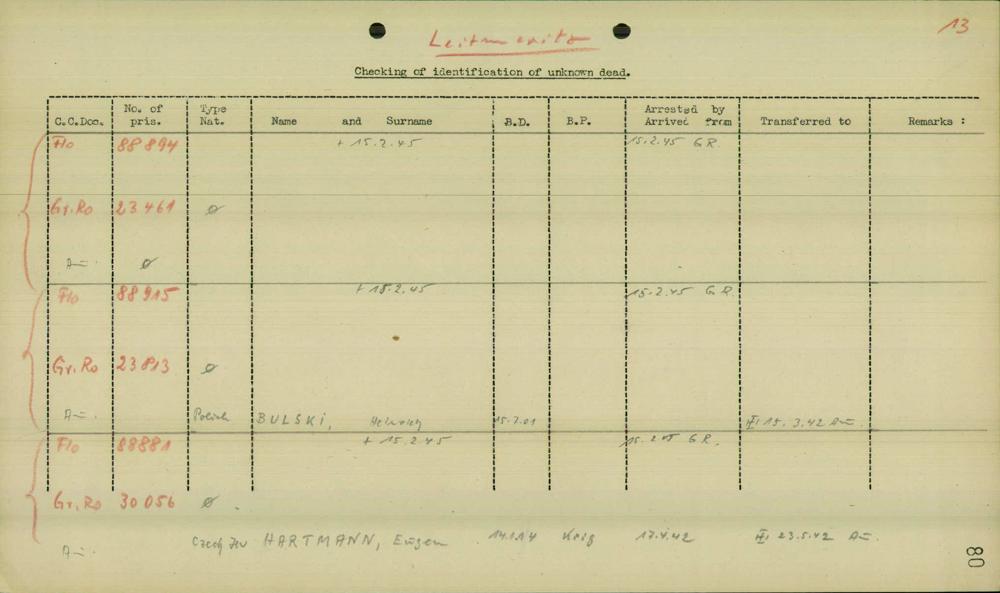 13
Leitmeritz
Checking of identification of unknown dead.
C.C.Doc. No. of pris. Type Nat. Name and Surname B.D. B.P. Arrested by Arrived from Transferred to Remarks :
Flo 88 894 + 15.2.45 15.2.45 G R.
Gr.Ro 23 461 ø
Au. ø
Flo 88 915 + 18.2.45 15.2.45 G R.
Gr.Ro 23 813 ø
Au. Polish BULSKI, Heinrich 15.7.01 15.3.42 Au.
Flo 88881 + 15.2.45 15.2.45 G R.
Gr.Ro 30 056 ø
Au. Czech Jew HARTMANN, Eugen 14.1.14 17.4.42 23.5.42 Au.
80